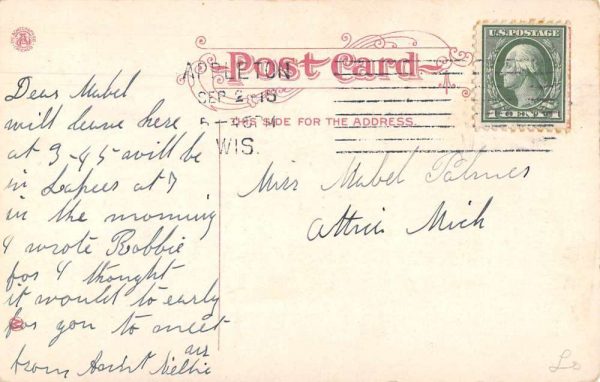 Post Card
THE SIDE FOR THE ADDRESS.
APPLETON
SEP 2 15
5-40PM
WIS.
U.S. POSTAGE
1 CENT 1
Dear Mabel
will leave here
at 3-45 will be
in Lapeer at 7
in the morning
I wrote Robbie
for I thought
it would to early
for you to meet
us
from Aunt Nellie
Miss Mabel Palmer
Attica Mich